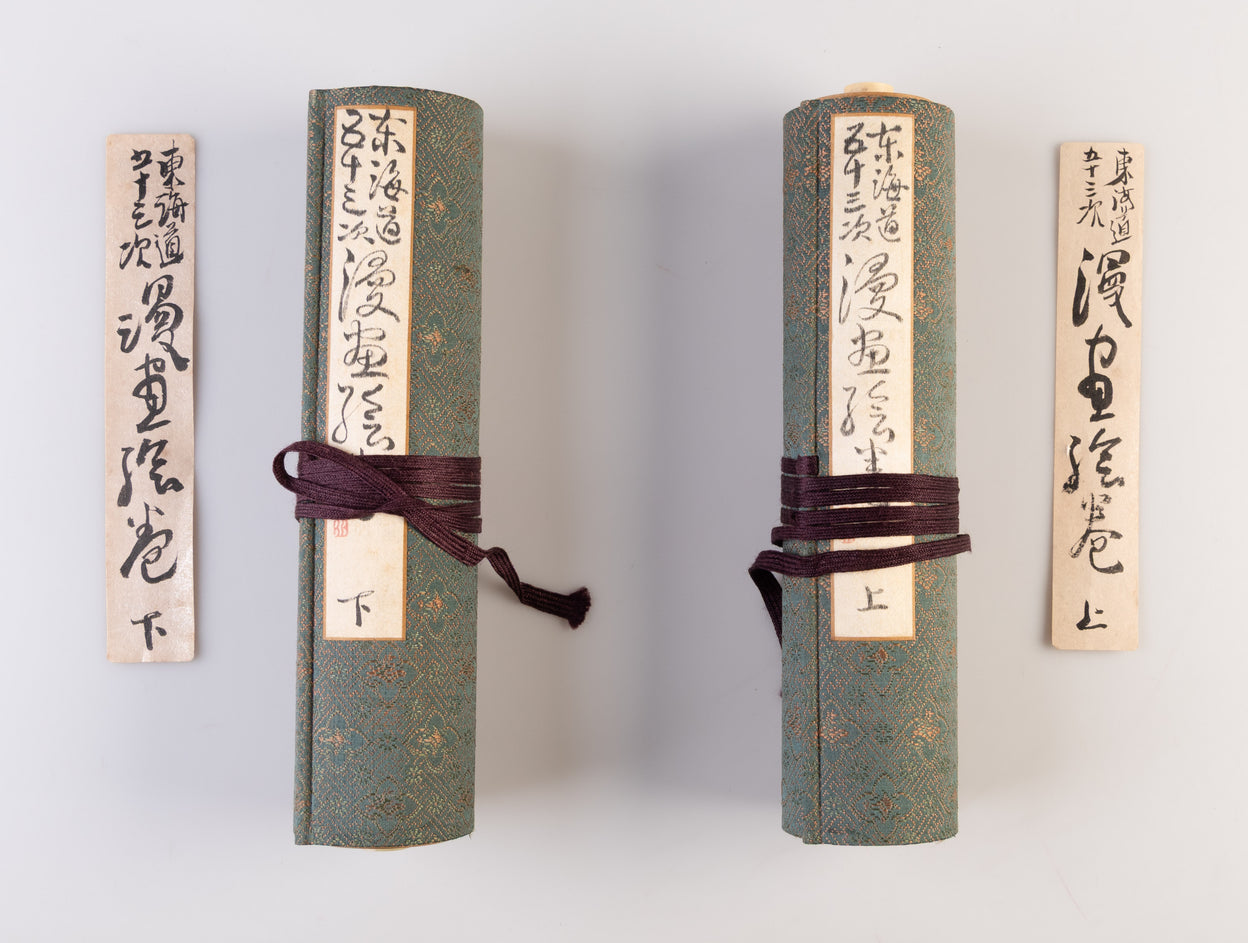 東海道
五十三次
漫画絵巻
上
東海道
五十三次
漫画絵
上
東海道
五十三次
漫画絵
下
東海道
五十三次
漫画絵巻
下